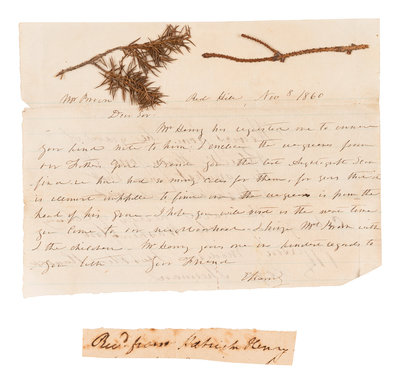 Mr Brown Red Hill, Nov 8 1860
Dear Sir.
Mr Henry has requested me to answer
your kind note to him I enclose the evergreens from
our Fathers Grave I send you the best I
find we have had so many calls for them, for years that it
is almost impossible to find one the evergreen is from the
head of his grave. I hope you will visit us the next time
you come to our neighborhood. I hope Mrs Brown with
the children. Mr Henry joins me in kindest regards to
you both Your Friend
Recd from Patrick Henry